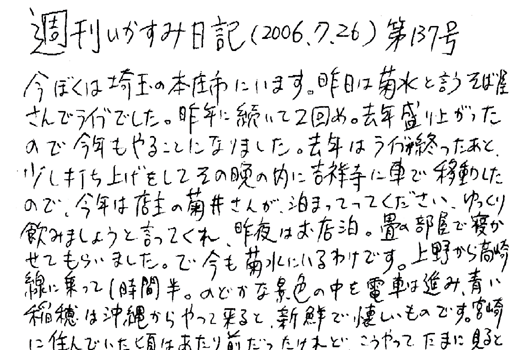 週刊いかすみ日記(2006.7.26)第137号
今ぼくは埼玉の本庄市にいます。昨日は菊水と言うそば屋
さんでライブでした。昨年に続いて2回め。去年盛り上がった
ので今年もやることになりました。去年はライブが終ったあと、
少し打ち上げをしてその晩の内に吉祥寺に車で移動した
ので、今年は店主の菊井さんが、泊まってってください、ゆっくり
飲みましょうと言ってくれ、昨夜はお店泊。畳の部屋で寝か
せてもらいました。で今も菊水にいるわけです。上野から高崎
線に乗って1時間半。のどかな景色の中を電車は進み、青い
稲穂は沖縄からやって来ると、新鮮で懐しいものです。宮崎
に住んでいた頃はあたり前だったけれど、こうやってたまに見ると